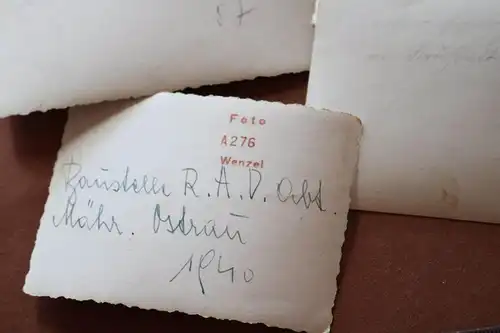 87
Foto
A276
Wenzel
Baustelle R.A.D. Abt.
Mähr. Ostrau
1940